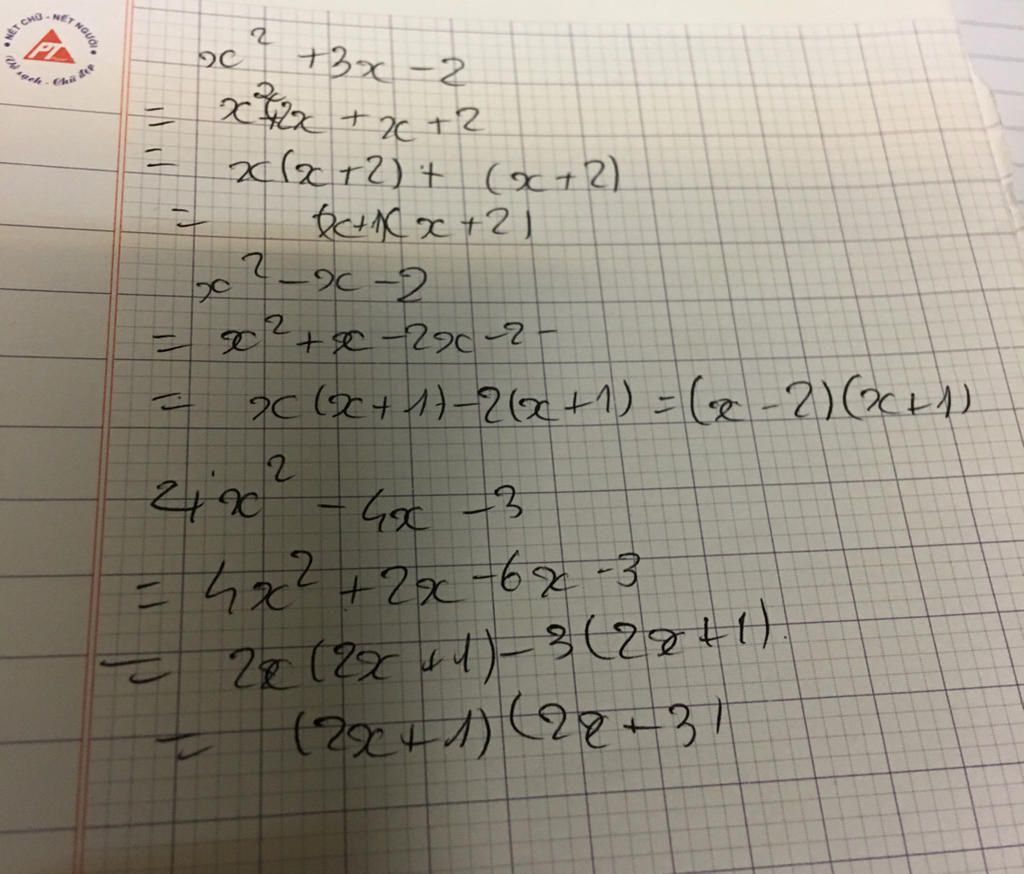 NÉT CHỮ - NẾT NGƯỜI
PT
Vở sạch - Chữ đẹp
x² + 3x - 2
= x² + 2x + x + 2
= x(x + 2) + (x + 2)
= (x + 1)(x + 2)
x² - x - 2
= x² + x - 2x - 2 -
= x(x + 1) - 2(x + 1) = (x - 2)(x + 1)
4x² - 4x - 3
= 4x² + 2x - 6x - 3
= 2x(2x + 1) - 3(2x + 1).
= (2x + 1)(2x + 3)